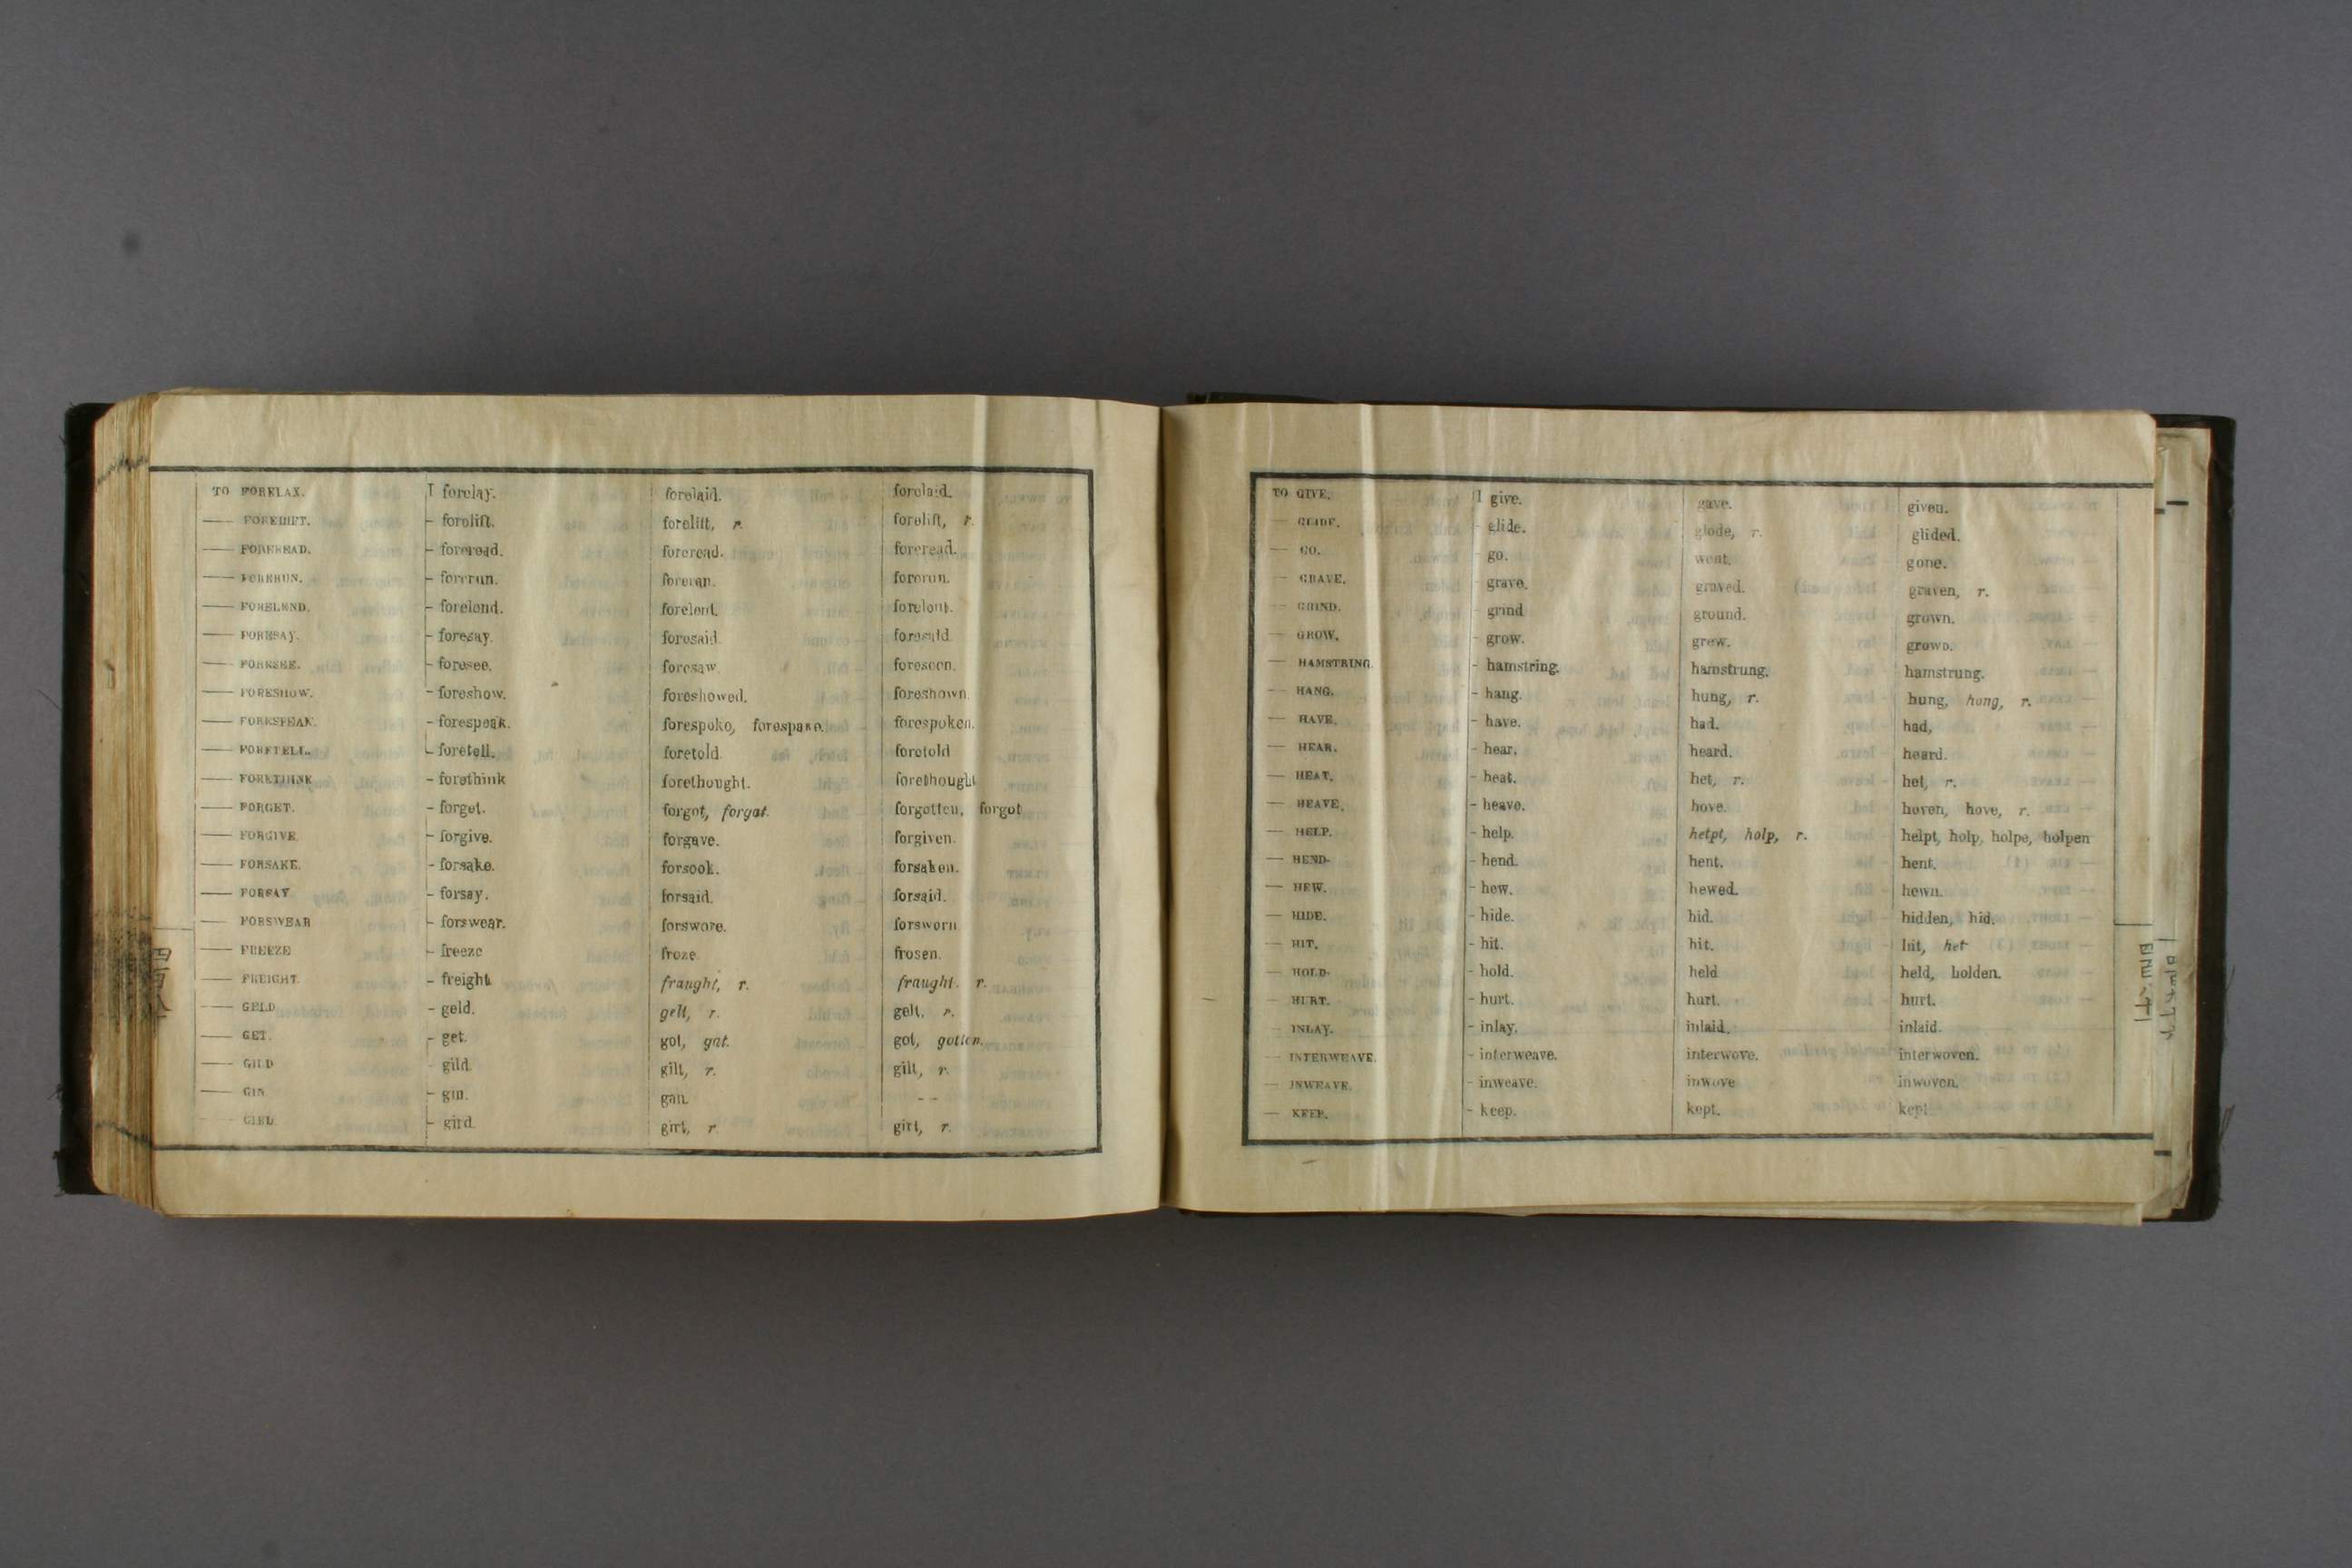 TO FORELAX. I forelay. forelaid. forelaid.
— FORELIFT. - forelift. forelift, r. forelift, r.
— FOREREAD. - foreread. foreread. foreread.
— FORERUN. - forerun. foreran. forerun.
— FORELEND. - forelend. forelent. forelent.
— FORESAY. - foresay. foresaid. foresaid
— FORESEE. - foresee. foresaw. foreseen.
— FORESHOW. - foreshow. foreshowed. foreshown.
— FORESPEAK. - forespeak. forespoke, forespake. forespoken.
— FORETELL. - foretell. foretold. foretold
— FORETHINK - forethink forethought. forethought
— FORGET. - forget. forgot, forgat. forgotten, forgot
— FORGIVE. - forgive. forgave. forgiven.
— FORSAKE. - forsake. forsook. forsaken.
— FORSAY - forsay. forsaid. forsaid.
— FORSWEAR - forswear. forswore. forsworn
— FREEZE - freeze froze. frosen.
— FREIGHT. - freight. fraught, r. fraught. r.
— GELD - geld. gelt, r. gelt, r.
— GET. - get. got, gat. got, gotten.
— GILD - gild. gilt, r. gilt, r.
— GIN - gin. gan. - -
— GIRD. - gird. girt, r. girt, r.
TO GIVE. I give. gave. given.
— GLIDE. - glide. glode, r. glided.
— GO. - go. went. gone.
— GRAVE. - grave. graved. graven, r.
— GRIND. - grind ground. grown.
— GROW. - grow. grew. grown.
— HAMSTRING. - hamstring. hamstrung. hamstrung.
— HANG. - hang. hung, r. hung, hong, r.
— HAVE. - have. had. had,
— HEAR. - hear. heard. heard.
— HEAT. - heat. het, r. het, r.
— HEAVE. - heave. hove. hoven, hove, r.
— HELP. - help. helpt, holp, r. helpt, holp, holpe, holpen
— HEND. - hend. hent. hent.
— HEW. - hew. hewed. hewn.
— HIDE. - hide. hid. hidden, hid.
— HIT. - hit. hit. hit, het
— HOLD. - hold. held held, holden.
— HURT. - hurt. hurt. hurt.
— INLAY. - inlay. inlaid. inlaid.
— INTERWEAVE. - interweave. interwove. interwoven.
— INWEAVE. - inweave. inwove inwoven.
— KEEP. - keep. kept. kept